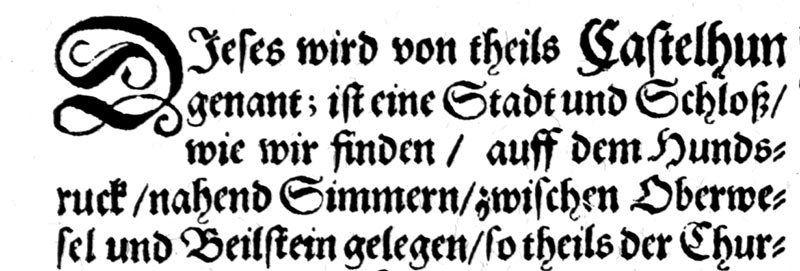 DJeſes wird von theils Caſtelhun
genant; iſt eine Stadt und Schloß/
wie wir finden / auff dem Hunds⸗
ruck /nahend Simmern/zwiſchen Oberwe⸗
ſel und Beilſtein gelegen/ſo theils der Chur⸗